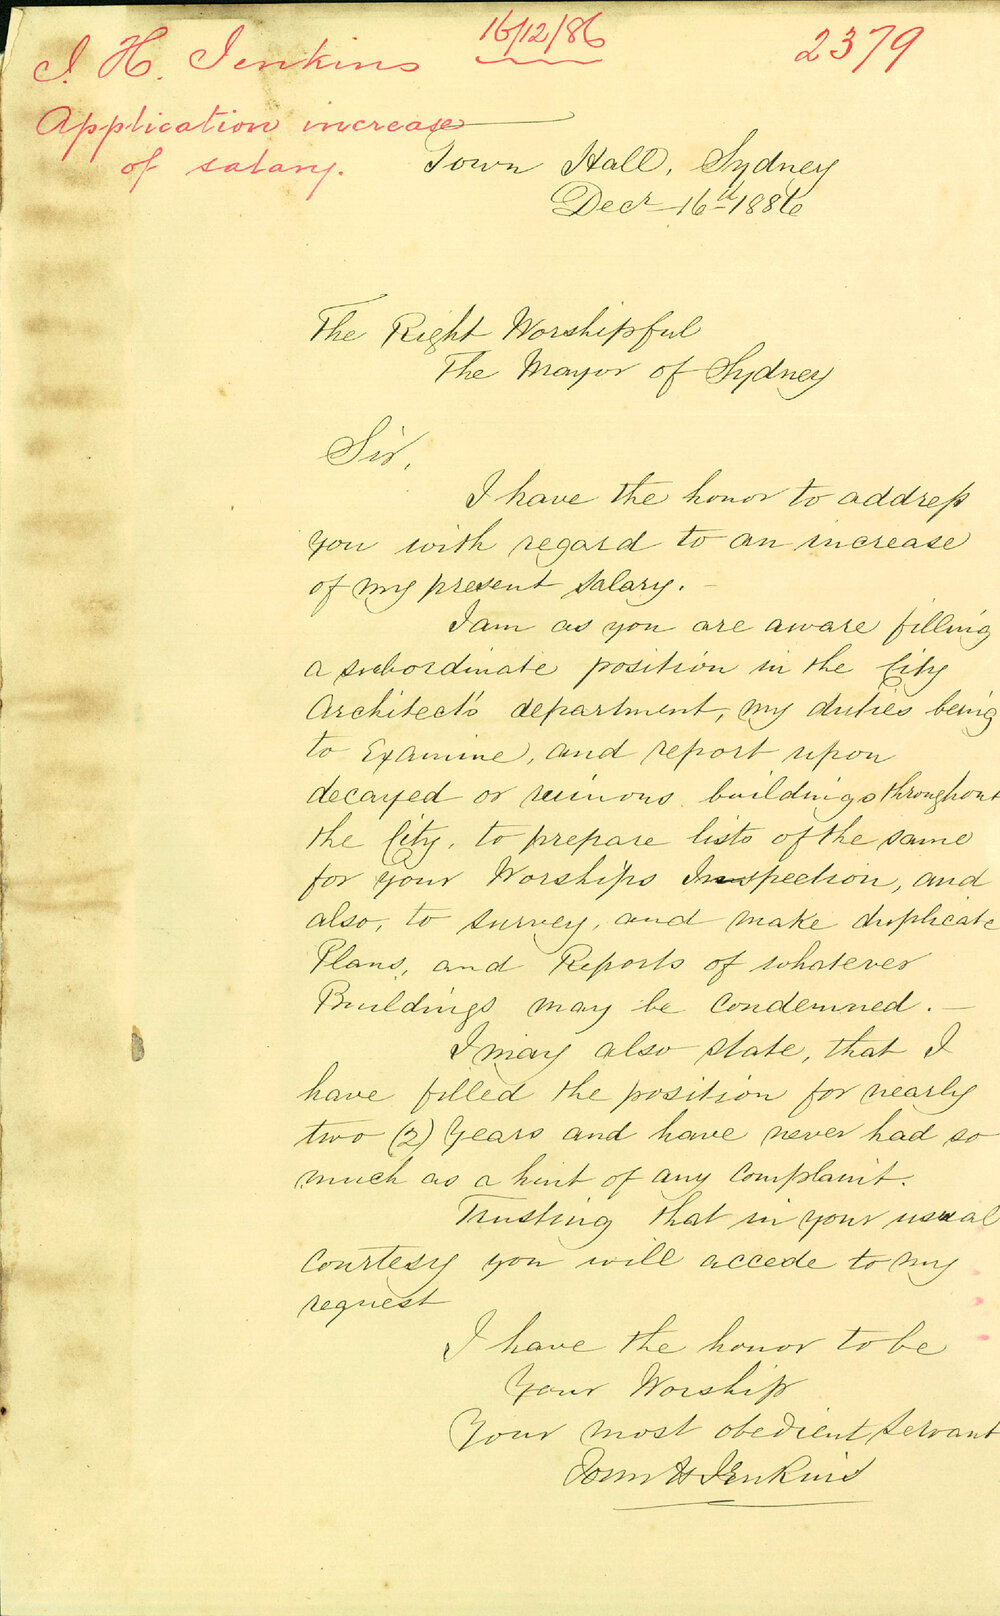 J. H. Jenkins
16/12/86
2379
Application increase
of salary.
Town Hall, Sydney
Decr 16th 1886
The Right Worshipful
The Mayor of Sydney
Sir,
I have the honor to address
you with regard to an increase
of my present salary. –
I am as you are aware filling
a subordinate position in the City
Architect's department, my duties being
to Examine, and report upon
decayed or ruinous buildings throughout
the City, to prepare lists of the same
for your Worships Inspection, and
also, to survey, and make duplicate
Plans, and Reports of whatever
Buildings may be Condemned. –
I may also state, that I
have filled the position for nearly
two (2) Years and have never had so
much as a hint of any Complaint.
Trusting that in your usual
Courtesy you will accede to my
request
I have the honor to be
Your Worship
Your most obedient Servant
John H Jenkins